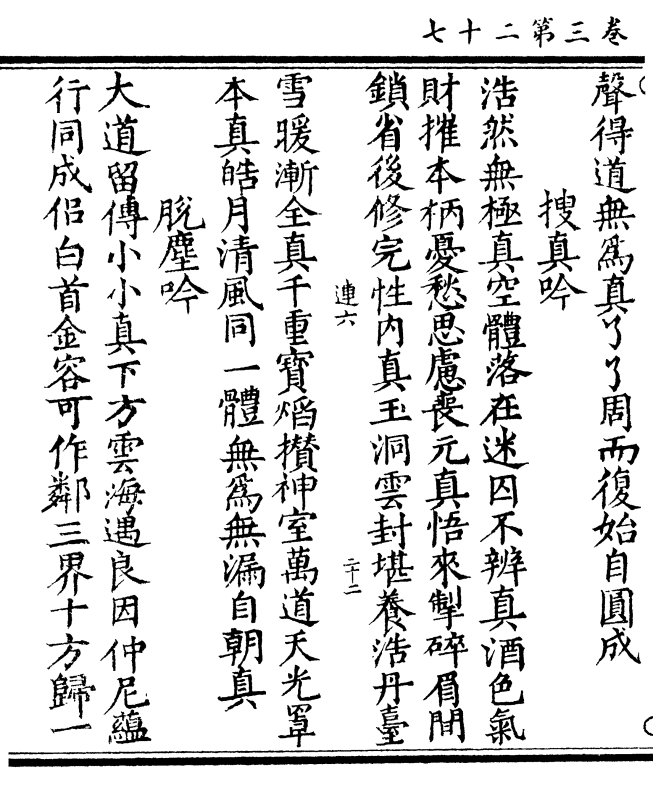 卷三第二十七
聲得道無爲真了了周而復始自圓成
搜真吟
浩然無極真空體落在迷囚不辨真酒色氣
財摧本柄憂愁思慮喪元真悟來掣碎眉間
鎖省後修完性内真玉洞雲封堪養浩丹臺
連六
二十二
雪暖漸全真千重寶焰攢神室萬道天光罩
本真皓月清風同一體無爲無漏自朝真
脫塵吟
大道留傳小小真下方雲海遇良因仲尼蘊
行同成侣白首金容可作鄰三界十方歸一